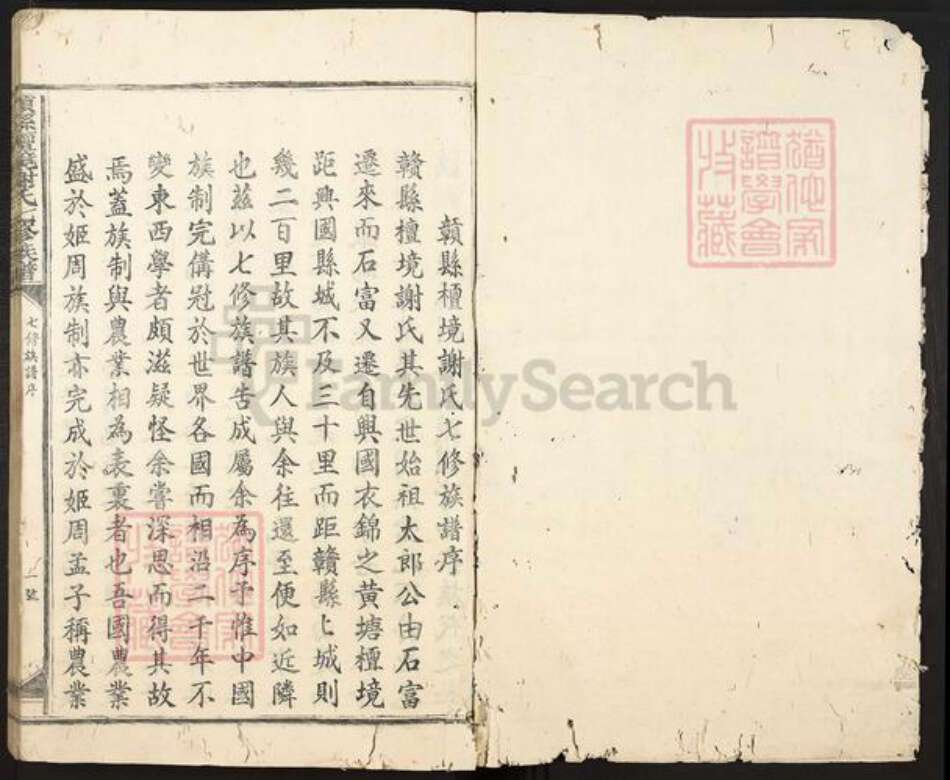 贛縣檀境謝氏七修族譜序
贛縣檀境謝氏其先世始祖太郎公由石富
遷來而石富又遷自興國衣錦之黃塘檀境
距興國縣城不及三十里而距贛縣上城則
幾二百里故其族人與余往還至便如近隣
也茲以七修族譜告成屬余為序予惟中國
族制完備冠於世界各國而相沿二千年不
變東西學者頗滋疑怪余嘗深思而得其故
焉蓋族制與農業相為表裏者也吾國農業
盛於姬周族制亦完成於姬周孟子稱農業
謝氏七修族譜
七修族譜序
一號
譜學會
收藏
FamilySearch